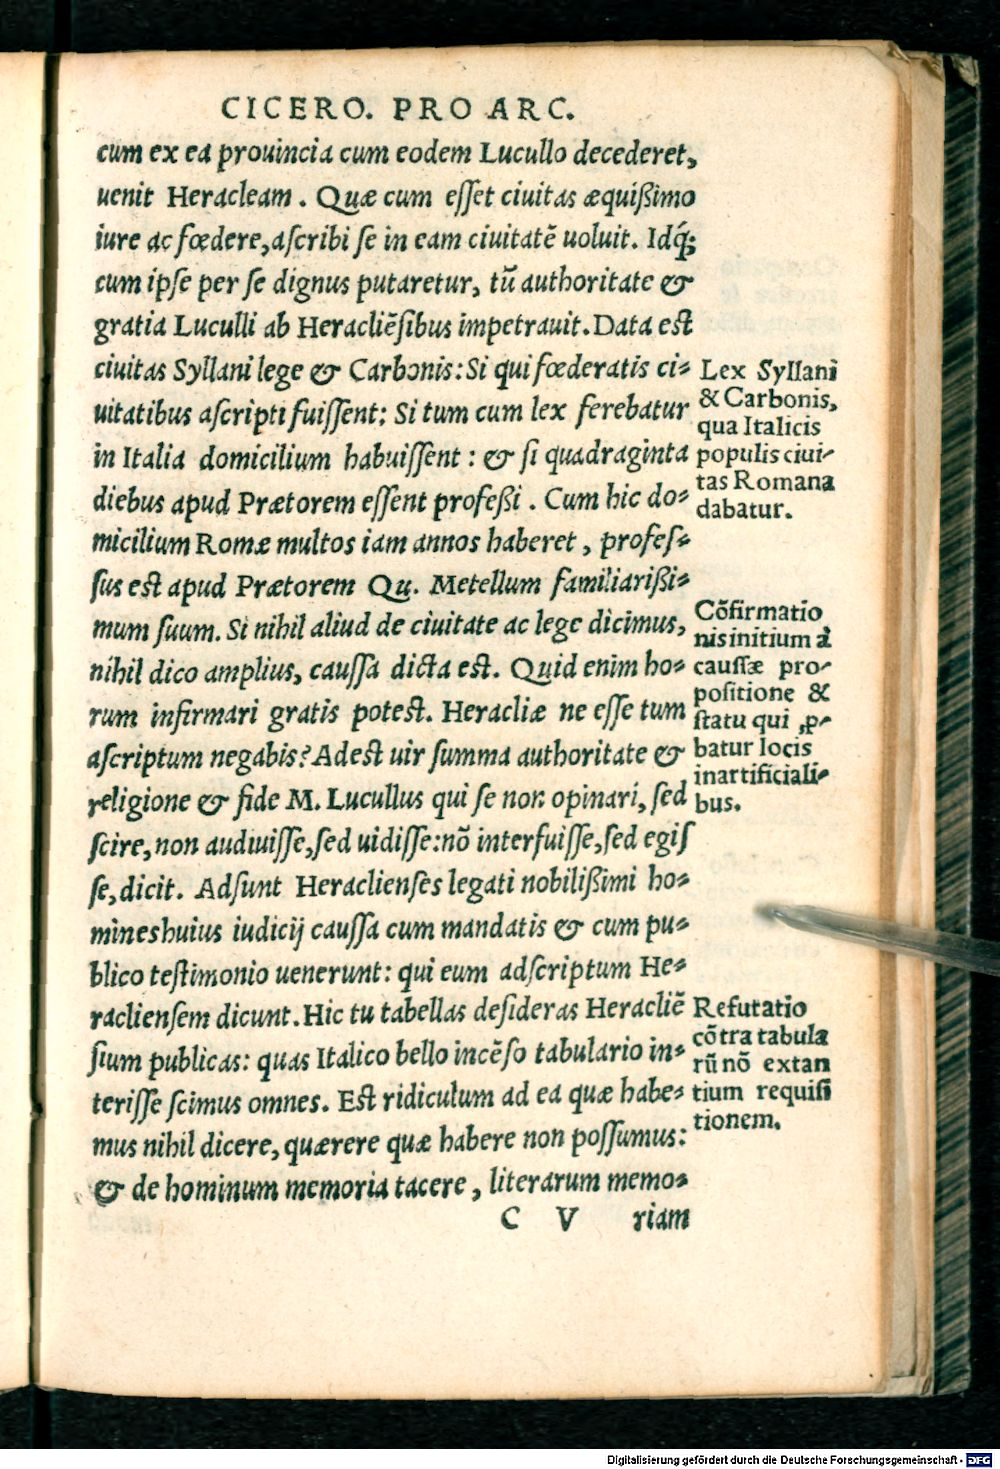 CICERO. PRO ARC.
cum ex ea prouincia cum eodem Lucullo decederet,
uenit Heracleam. Quæ cum esset ciuitas æquißimo
iure ac fœdere, ascribi se in eam ciuitatē uoluit. Idq́;
cum ipse per se dignus putaretur, tū authoritate &
gratia Luculli ab Heracliēsibus impetrauit. Data est
ciuitas Syllani lege & Carbonis: Si qui fœderatis ci-
uitatibus ascripti fuissent: Si tum cum lex ferebatur
in Italia domicilium habuissent: & si quadraginta
diebus apud Prætorem essent profeßi. Cum hic do-
micilium Romæ multos iam annos haberet, profes-
sus est apud Prætorem Qu. Metellum familiarißi-
mum suum. Si nihil aliud de ciuitate ac lege dicimus,
nihil dico amplius, caussa dicta est. Quid enim ho-
rum infirmari gratis potest. Heracliæ ne esse tum
ascriptum negabis? Adest uir summa authoritate &
religione & fide M. Lucullus qui se non opinari, sed
scire, non audiuisse, sed uidisse: nō interfuisse, sed egis
se, dicit. Adsunt Heraclienses legati nobilißimi ho-
mines huius iudicij caussa cum mandatis & cum pu-
blico testimonio uenerunt: qui eum adscriptum He-
racliensem dicunt. Hic tu tabellas desideras Heracliē
sium publicas: quas Italico bello incēso tabulario in-
terisse scimus omnes. Est ridiculum ad ea quæ habe-
mus nihil dicere, quærere quæ habere non possumus:
& de hominum memoria tacere, literarum memo-
C V riam
Lex Syllani
& Carbonis,
qua Italicis
populis ciui-
tas Romana
dabatur.
Cōfirmatio
nis initium à
caussæ pro-
positione &
statu qui ꝓ-
batur locis
inartificiali-
bus.
Refutatio
cōtra tabula
rū nō extan
tium requisi
tionem.
Digitalisierung gefördert durch die Deutsche Forschungsgemeinschaft - DFG